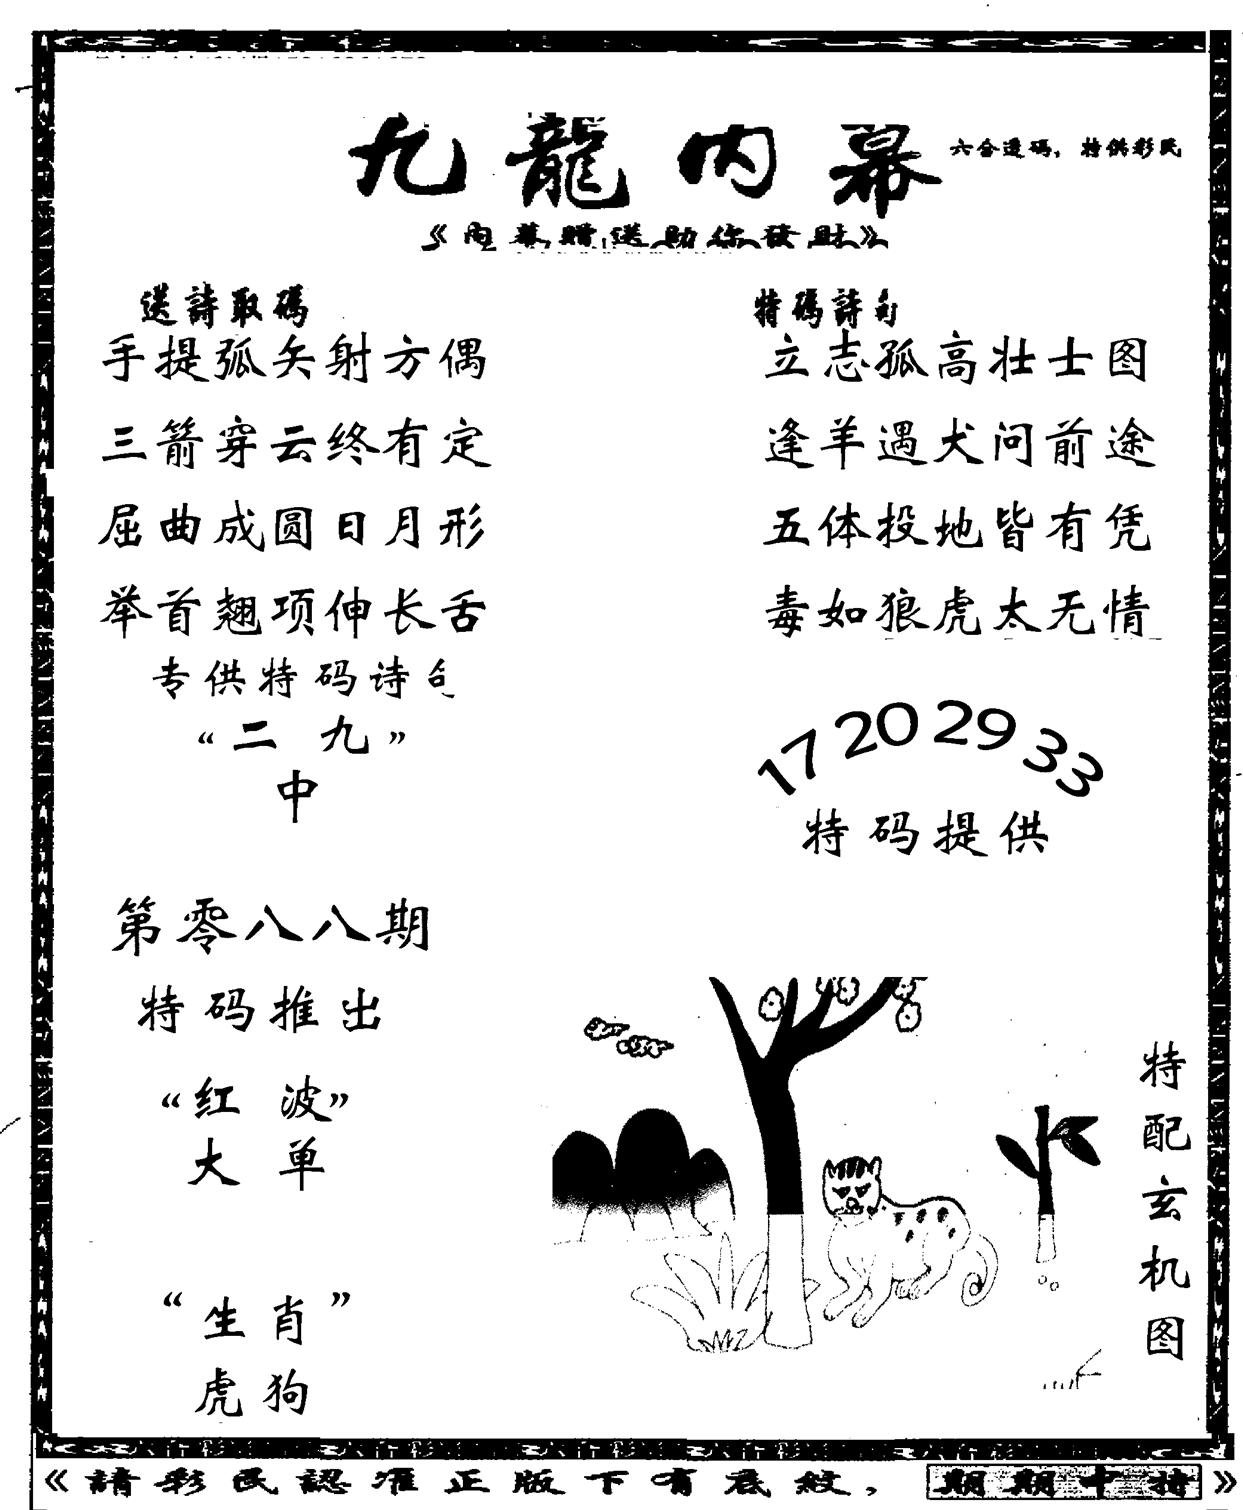 九龍内幕
六合透码，特供彩民
《内幕赠送助你發財》
送詩取碼
手提弧矢射方偶
三箭穿云终有定
屈曲成圆日月形
举首翘项伸长舌
专供特码诗句
“二九”
中
第零八八期
特码推出
“红波”
大单
“生肖”
虎狗
特碼詩句
立志孤高壮士图
逢羊遇犬问前途
五体投地皆有凭
毒如狼虎太无情
17 20 29 33
特码提供
特配玄机图
《請彩民認准正版下有底紋，期期中特》